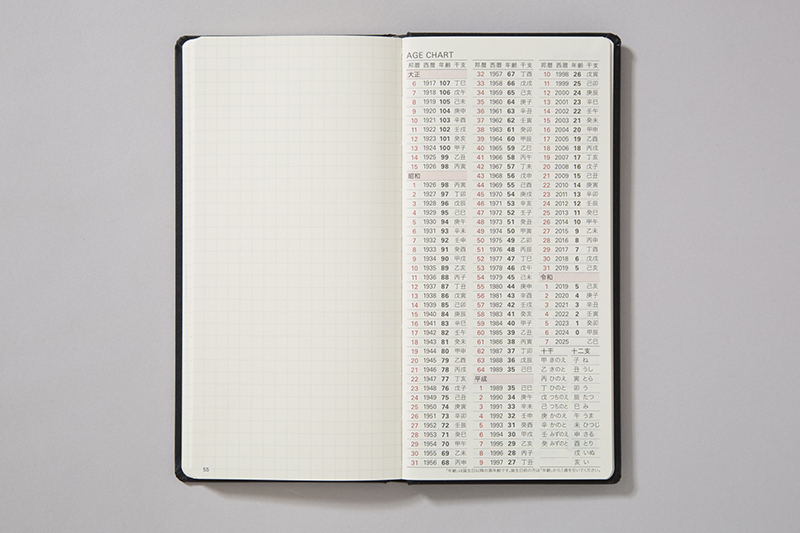 AGE CHART
邦暦 西暦 年齢 干支
大正
6 1917 107 丁巳
7 1918 106 戊午
8 1919 105 己未
9 1920 104 庚申
10 1921 103 辛酉
11 1922 102 壬戌
12 1923 101 癸亥
13 1924 100 甲子
14 1925 99 乙丑
15 1926 98 丙寅
昭和
1 1926 98 丙寅
2 1927 97 丁卯
3 1928 96 戊辰
4 1929 95 己巳
5 1930 94 庚午
6 1931 93 辛未
7 1932 92 壬申
8 1933 91 癸酉
9 1934 90 甲戌
10 1935 89 乙亥
11 1936 88 丙子
12 1937 87 丁丑
13 1938 86 戊寅
14 1939 85 己卯
15 1940 84 庚辰
16 1941 83 辛巳
17 1942 82 壬午
18 1943 81 癸未
19 1944 80 甲申
20 1945 79 乙酉
21 1946 78 丙戌
22 1947 77 丁亥
23 1948 76 戊子
24 1949 75 己丑
25 1950 74 庚寅
26 1951 73 辛卯
27 1952 72 壬辰
28 1953 71 癸巳
29 1954 70 甲午
30 1955 69 乙未
31 1956 68 丙申
邦暦 西暦 年齢 干支
32 1957 67 丁酉
33 1958 66 戊戌
34 1959 65 己亥
35 1960 64 庚子
36 1961 63 辛丑
37 1962 62 壬寅
38 1963 61 癸卯
39 1964 60 甲辰
40 1965 59 乙巳
41 1966 58 丙午
42 1967 57 丁未
43 1968 56 戊申
44 1969 55 己酉
45 1970 54 庚戌
46 1971 53 辛亥
47 1972 52 壬子
48 1973 51 癸丑
49 1974 50 甲寅
50 1975 49 乙卯
51 1976 48 丙辰
52 1977 47 丁巳
53 1978 46 戊午
54 1979 45 己未
55 1980 44 庚申
56 1981 43 辛酉
57 1982 42 壬戌
58 1983 41 癸亥
59 1984 40 甲子
60 1985 39 乙丑
61 1986 38 丙寅
62 1987 37 丁卯
63 1988 36 戊辰
64 1989 35 己巳
平成
1 1989 35 己巳
2 1990 34 庚午
3 1991 33 辛未
4 1992 32 壬申
5 1993 31 癸酉
6 1994 30 甲戌
7 1995 29 乙亥
8 1996 28 丙子
9 1997 27 丁丑
邦暦 西暦 年齢 干支
10 1998 26 戊寅
11 1999 25 己卯
12 2000 24 庚辰
13 2001 23 辛巳
14 2002 22 壬午
15 2003 21 癸未
16 2004 20 甲申
17 2005 19 乙酉
18 2006 18 丙戌
19 2007 17 丁亥
20 2008 16 戊子
21 2009 15 己丑
22 2010 14 庚寅
23 2011 13 辛卯
24 2012 12 壬辰
25 2013 11 癸巳
26 2014 10 甲午
27 2015 9 乙未
28 2016 8 丙申
29 2017 7 丁酉
30 2018 6 戊戌
31 2019 5 己亥
令和
1 2019 5 己亥
2 2020 4 庚子
3 2021 3 辛丑
4 2022 2 壬寅
5 2023 1 癸卯
6 2024 0 甲辰
7 2025 乙巳
十干 十二支
甲 きのえ 子 ね
乙 きのと 丑 うし
丙 ひのえ 寅 とら
丁 ひのと 卯 う
戊 つちのえ 辰 たつ
己 つちのと 巳 み
庚 かのえ 午 うま
辛 かのと 未 ひつじ
壬 みずのえ 申 さる
癸 みずのと 酉 とり
戌 いぬ
亥 い
「年齢」は誕生日以降の満年齢です。誕生日前の方は「年齢」から1歳を引いてください。
55